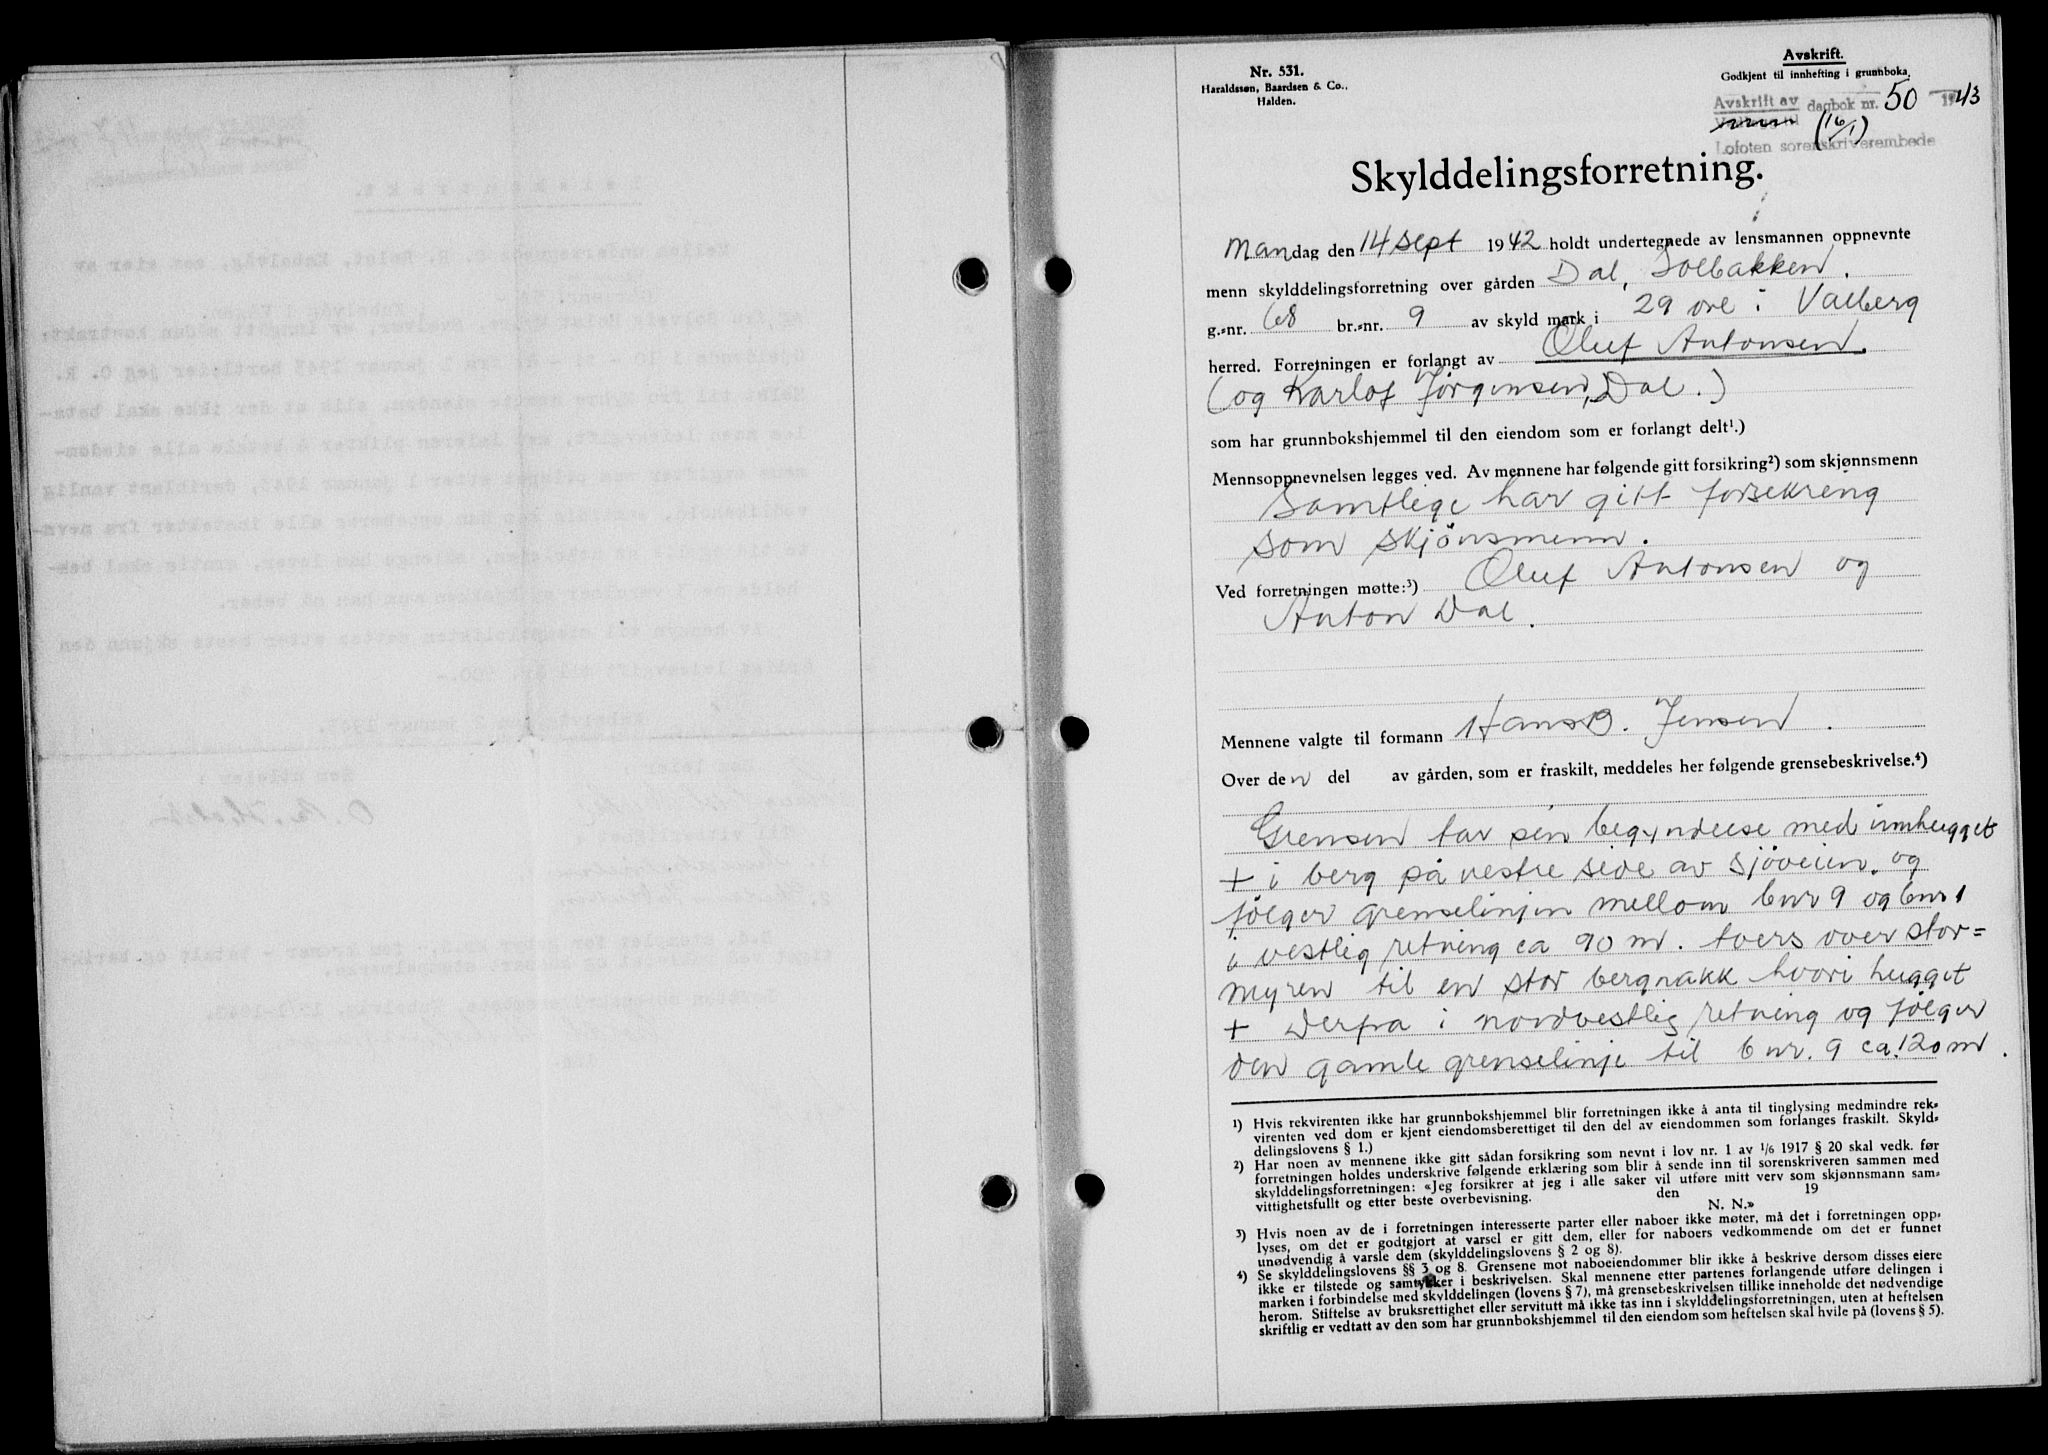 Nr. 531.
Haraldssøn, Baardsen & Co.,
Halden.
Avskrift.
Godkjent til innhefting i grunnboka.
Avskrift av dagbok nr. 50 1943
(16/1)
Lofoten sorenskriverembede
Skylddelingsforretning.
Mandag den 14 Sept 1942 holdt undertegnede av lensmannen oppnevnte
menn skylddelingsforretning over gården Dal, Solbakken.
g.-nr. 68 br.-nr. 9 av skyld mark i 29 øre i Valberg
herred. Forretningen er forlangt av Oluf Antonsen.
(og Karlof Jørgensen, Dal.)
som har grunnbokshjemmel til den eiendom som er forlangt delt¹.)
Mennsoppnevnelsen legges ved. Av mennene har følgende gitt forsikring²) som skjønnsmenn
Samtlige har gitt forsikring
som skjönsmenn.
Ved forretningen møtte:³) Oluf Antonsen og
Anton Dal.
Mennene valgte til formann Hans B. Jensen.
Over den del av gården, som er fraskilt, meddeles her følgende grensebeskrivelse.⁴)
Grensen tar sin begyndelse med innhugget
+ i berg på vestre side av sjöveien. og
fölger grenselinjen mellom bnr 9 og bnr 1
i vestlig retning ca 90 m. tvers over stor=
myren til en stor bergnakk hvori hugget
+ Derfra i nordvestlig retning og fölger
den gamle grenselinje til bnr. 9 ca. 120 m.
¹) Hvis rekvirenten ikke har grunnbokshjemmel blir forretningen ikke å anta til tinglysing medmindre rek-
virenten ved dom er kjent eiendomsberettiget til den del av eiendommen som forlanges fraskilt. Skyld-
delingslovens § 1.)
²) Har noen av mennene ikke gitt sådan forsikring som nevnt i lov nr. 1 av 1/6 1917 § 20 skal vedk. før
forretningen holdes underskrive følgende erklæring som blir å sende inn til sorenskriveren sammen med
skylddelingsforretningen: «Jeg forsikrer at jeg i alle saker vil utføre mitt verv som skjønnsmann sam-
vittighetsfullt og etter beste overbevisning. den 19
N. N.»
³) Hvis noen av de i forretningen interesserte parter eller naboer ikke møter, må det i forretningen opp-
lyses, om det er godtgjort at varsel er gitt dem, eller for naboers vedkommende om det er funnet
unødvendig å varsle dem (skylddelingslovens § 2 og 8).
⁴) Se skylddelingslovens §§ 3 og 8. Grensene mot naboeiendommer blir ikke å beskrive dersom disses eiere
ikke er tilstede og samtykker i beskrivelsen. Skal mennene etter partenes forlangende utføre delingen i
marken i forbindelse med skylddelingen (lovens § 7), må grensebeskrivelsen tillike inneholde det nødvendige
herom. Stiftelse av bruksrettighet eller servitutt må ikke tas inn i skylddelingsforretningen, uten at heftelsen
skriftlig er vedtatt av den som har grunnbokshjemmel til den eiendom som heftelsen skal hvile på (lovens § 5).